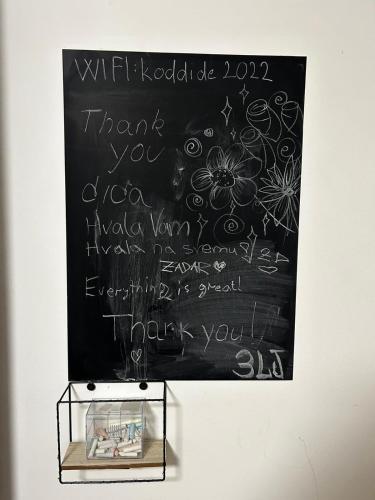 WIFI:koddide 2022
Thank
you
dida
Hvala Vam!
Hvala na svemu!
ZADAR
Everything is great!
Thank you!
3LJ